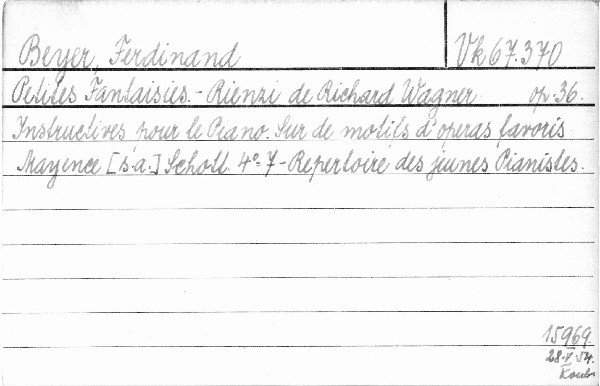 Beyer, Ferdinand Vk 67.370
Petites Fantaisies. - Rienzi de Richard Wagner op. 36.
Instructives pour le Piano. Sur de motifs d'operas favoris
Mayence [s.a.] Schott. 4° 7 - Repertoire des jeunes Pianistes.
15969.
28.V.54.
Koub